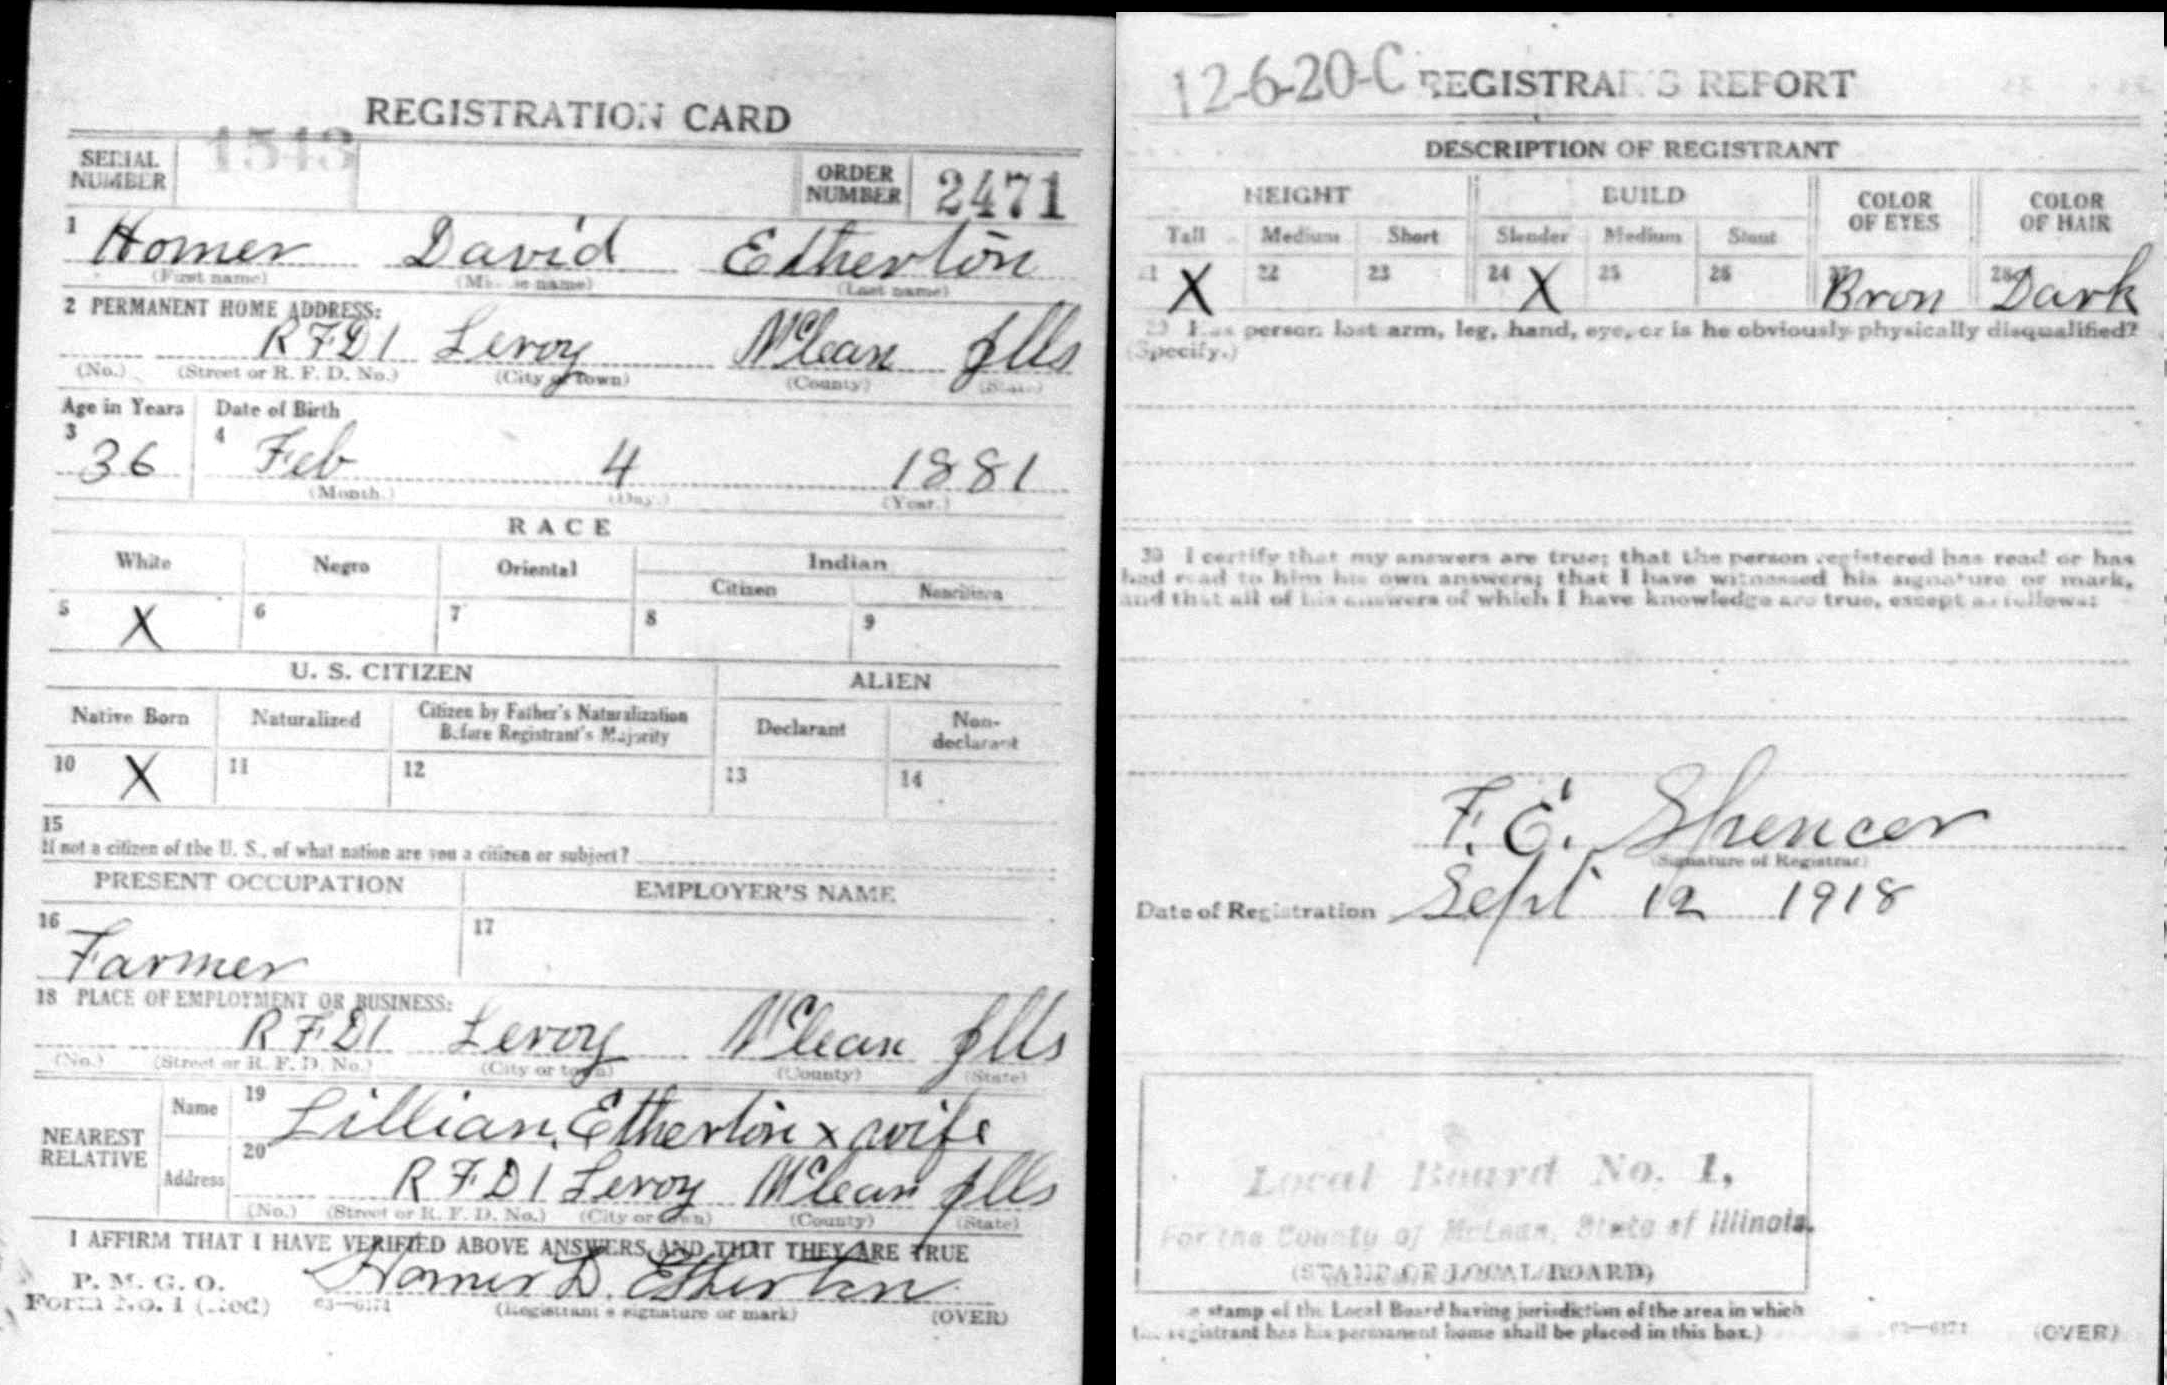 REGISTRATION CARD
SERIAL NUMBER 1543 ORDER NUMBER 2471
1 Homer David Etherton
(First name) (Middle name) (Last name)
2 PERMANENT HOME ADDRESS:
RFD1 Leroy McLean Ills
(No.) (Street or R. F. D. No.) (City or town) (County) (State)
Age in Years Date of Birth
3 36 4 Feb 4 1881
(Month.) (Day.) (Year.)
RACE
White Negro Oriental Indian
Citizen Noncitizen
5 X 6 7 8 9
U. S. CITIZEN ALIEN
Native Born Naturalized Citizen by Father's Naturalization Before Registrant's Majority Declarant Non-declarant
10 X 11 12 13 14
15
If not a citizen of the U. S., of what nation are you a citizen or subject?
PRESENT OCCUPATION EMPLOYER'S NAME
16 Farmer 17
18 PLACE OF EMPLOYMENT OR BUSINESS:
RFD1 Leroy McLean Ills
(No.) (Street or R. F. D. No.) (City or town) (County) (State)
NEAREST RELATIVE Name 19 Lillian Etherton x wife
Address 20 RFD1 Leroy McLean Ills
(No.) (Street or R. F. D. No.) (City or town) (County) (State)
I AFFIRM THAT I HAVE VERIFIED ABOVE ANSWERS AND THAT THEY ARE TRUE
P. M. G. O.
Form No. 1 (Red) 03—6171 Homer D. Etherton
(Registrant's signature or mark) (OVER)
12-6-20-C REGISTRAR'S REPORT
DESCRIPTION OF REGISTRANT
HEIGHT BUILD COLOR OF EYES COLOR OF HAIR
Tall Medium Short Slender Medium Stout
21 X 22 23 24 X 25 26 27 Bron 28 Dark
29 Has person lost arm, leg, hand, eye, or is he obviously physically disqualified?
(Specify.)
30 I certify that my answers are true; that the person registered has read or has
had read to him his own answers; that I have witnessed his signature or mark,
and that all of his answers of which I have knowledge are true, except as follows:
F. E. Spencer
(Signature of Registrar)
Date of Registration Sept 12 1918
Local Board No. 1,
For the County of McLean, State of Illinois.
(STAMP OF LOCAL BOARD)
stamp of the Local Board having jurisdiction of the area in which
the registrant has his permanent home shall be placed in this box.)
03—6171 (OVER)